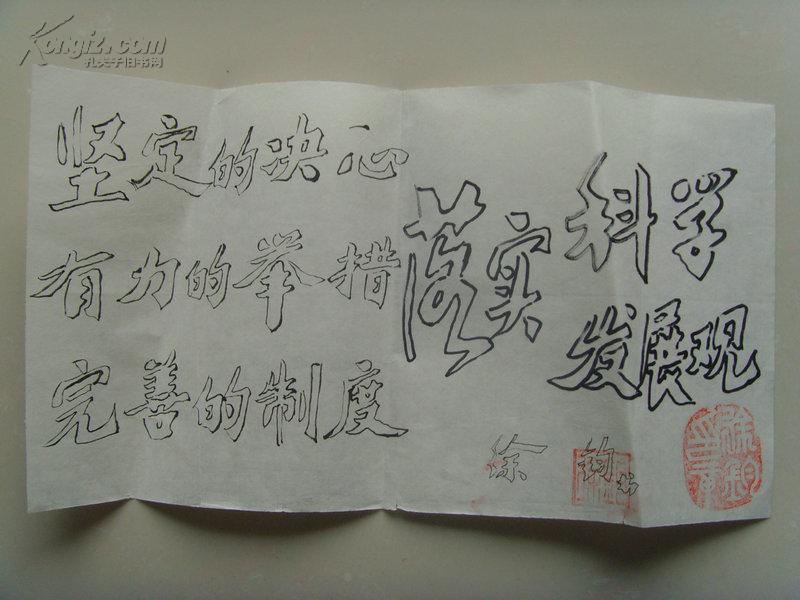 Kongfz.com
孔夫子旧书网
坚定的决心
有力的举措
完善的制度
落实
科学
发展现
徐钧书